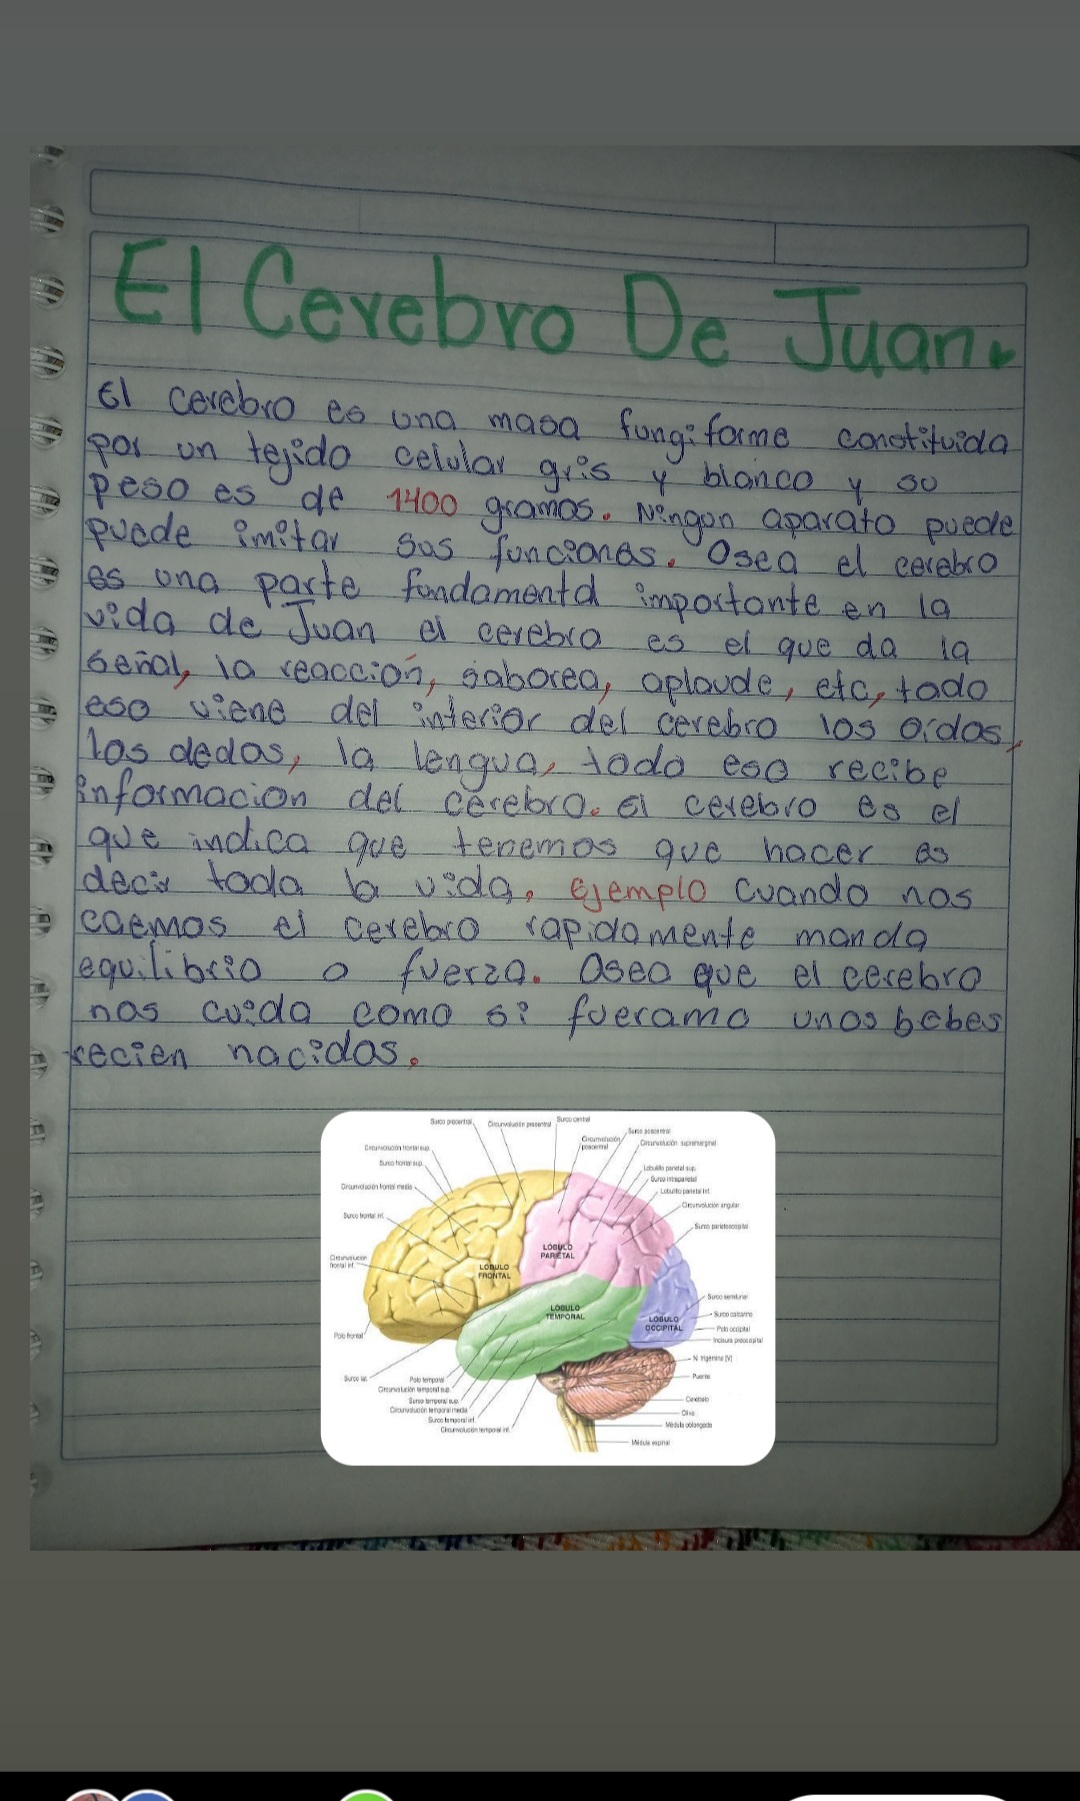 El Cerebro De Juan.
El cerebro es una masa fungiforme constituida
por un tejido celular gris y blanco y su
peso es de 1400 gramos. Ningun aparato puede
puede imitar sus funciones. Osea el cerebro
es una parte fundamental importante en la
vida de Juan el cerebro es el que da la
señal, la reacción, saborea, aplaude, etc, todo
eso viene del interior del cerebro los oídos,
los dedos, la lengua, todo eso recibe
informacion del cerebro. El cerebro es el
que indica que tenemos que hacer es
decir toda la vida, Ejemplo cuando nos
caemos el cerebro rapidamente manda
equilibrio o fuerza. Osea que el cerebro
nos cuida como si fueramo unos bebes
recien nacidos.
Surco precentral
Circunvolución precentral
Surco central
Circunvolución frontal sup.
Surco frontal sup.
Circunvolución frontal media
Surco frontal inf.
Circunvolución
frontal inf.
Polo frontal
Surco lat.
Polo temporal
Circunvolución temporal sup.
Surco temporal sup.
Circunvolución temporal media
Surco temporal inf.
Circunvolución temporal inf.
Circunvolución
poscentral
Surco poscentral
Circunvolución supramarginal
Lobulillo parietal sup.
Surco intraparietal
Lobulillo parietal inf.
Circunvolución angular
Surco parietooccipital
LÓBULO
FRONTAL
LÓBULO
PARIETAL
LÓBULO
TEMPORAL
LÓBULO
OCCIPITAL
Surco semilunar
Surco calcarino
Polo occipital
Incisura preoccipital
N. trigémino [V]
Puente
Cerebelo
Oliva
Médula oblongada
Médula espinal